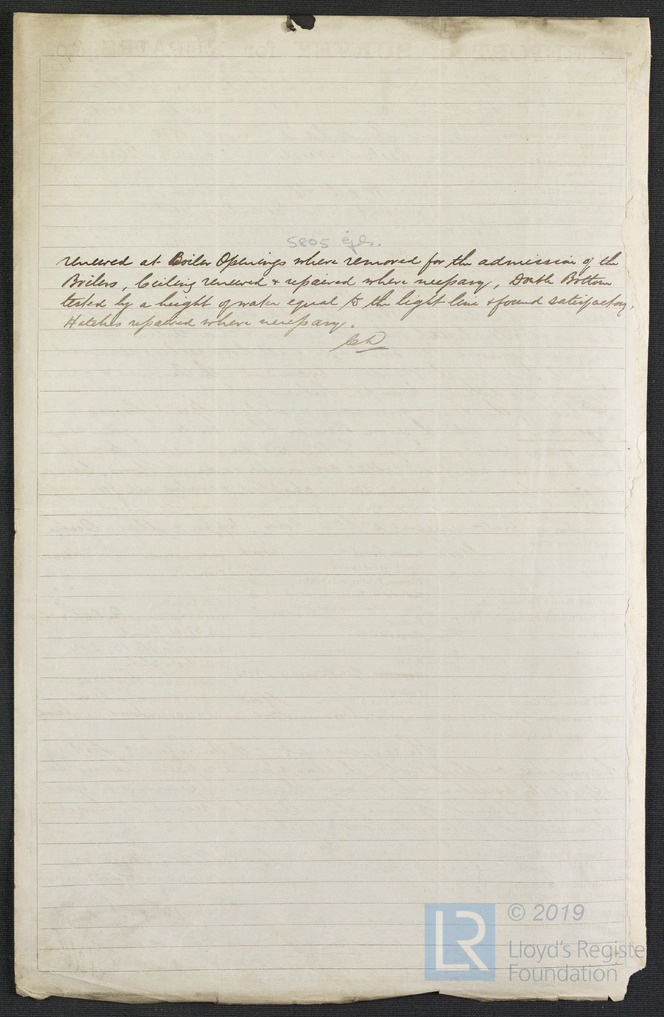 5805
renewed at Boiler Openings where removed for the admission of the
Boilers, Ceiling renewed & repaired where necessary, Double Bottom
tested by a height of water equal to the light line & found satisfactory,
Hatches repaired where necessary.
LR
© 2019
Lloyd's Registe
Foundation